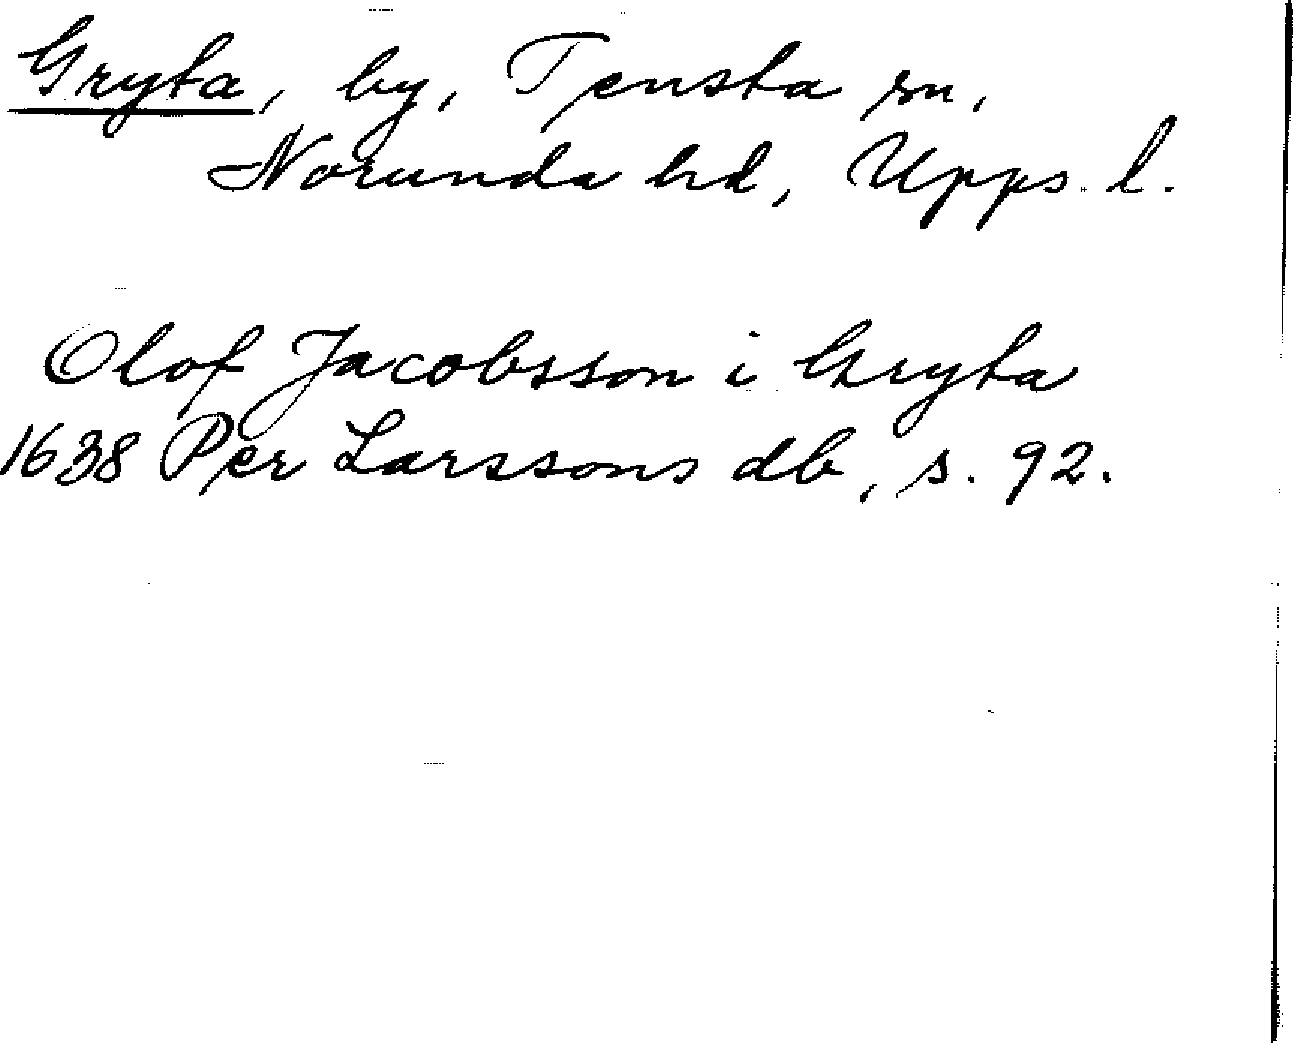 Gryta, by, Tensta sn,
Norunda hd, Upps. l.
Olof Jacobsson i Gryta
1638 Per Larssons db, s. 92.